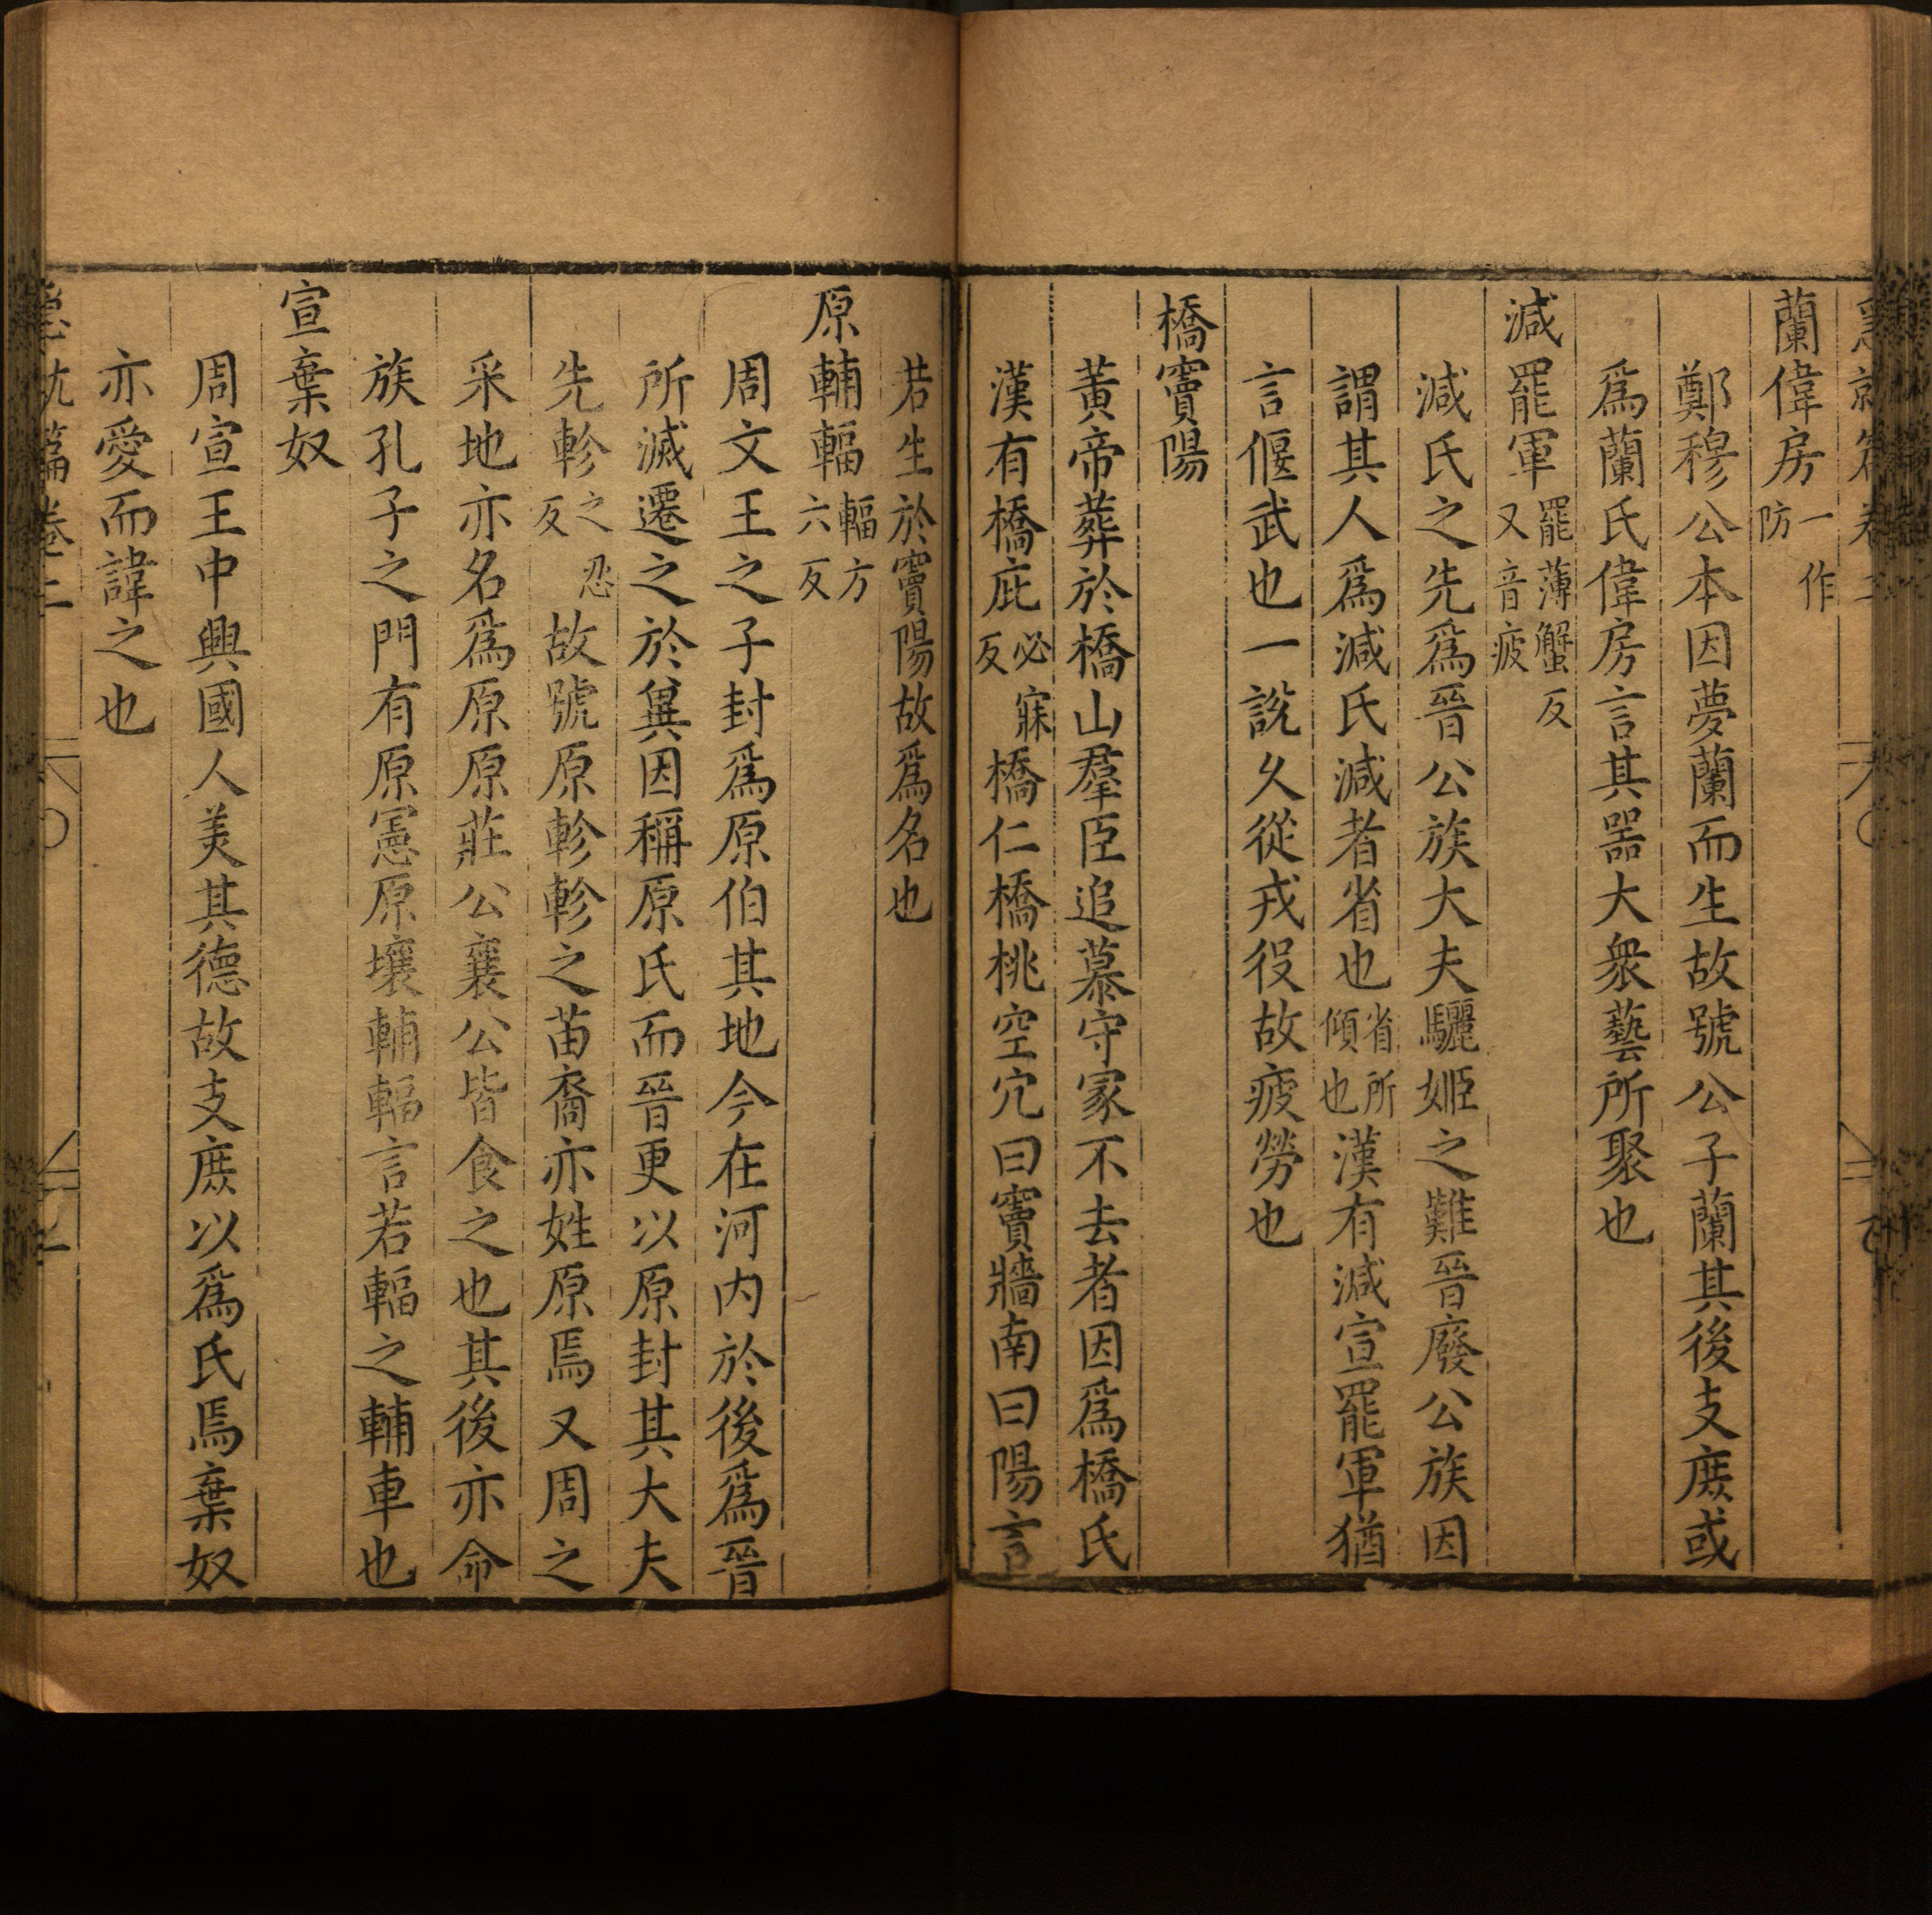 蘭偉房一作防
鄭穆公本因夢蘭而生故號公子蘭其後支庶或
爲蘭氏偉房言其器大衆藝所聚也
減罷軍罷薄蟹反又音疲
減氏之先爲晉公族大夫驪姬之難晉廢公族因
謂其人爲減氏減者省也省所傾也漢有減宣罷軍猶
言偃武也一說久從戎役故疲勞也
橋竇陽
黃帝葬於橋山羣臣追慕守冢不去者因爲橋氏
漢有橋庇必寐反橋仁橋桃空穴曰竇牆南曰陽言
若生於竇陽故爲名也
原輔輻輻方六反
周文王之子封爲原伯其地今在河内於後爲晉
所滅遷之於冀因稱原氏而晉更以原封其大夫
先軫之忍反故號原軫軫之苗裔亦姓原焉又周之
采地亦名爲原原莊公襄公皆食之也其後亦命
族孔子之門有原憲原壤輔輻言若輻之輔車也
宣棄奴
周宣王中興國人美其德故支庶以爲氏焉棄奴
亦愛而諱之也
急就篇卷二